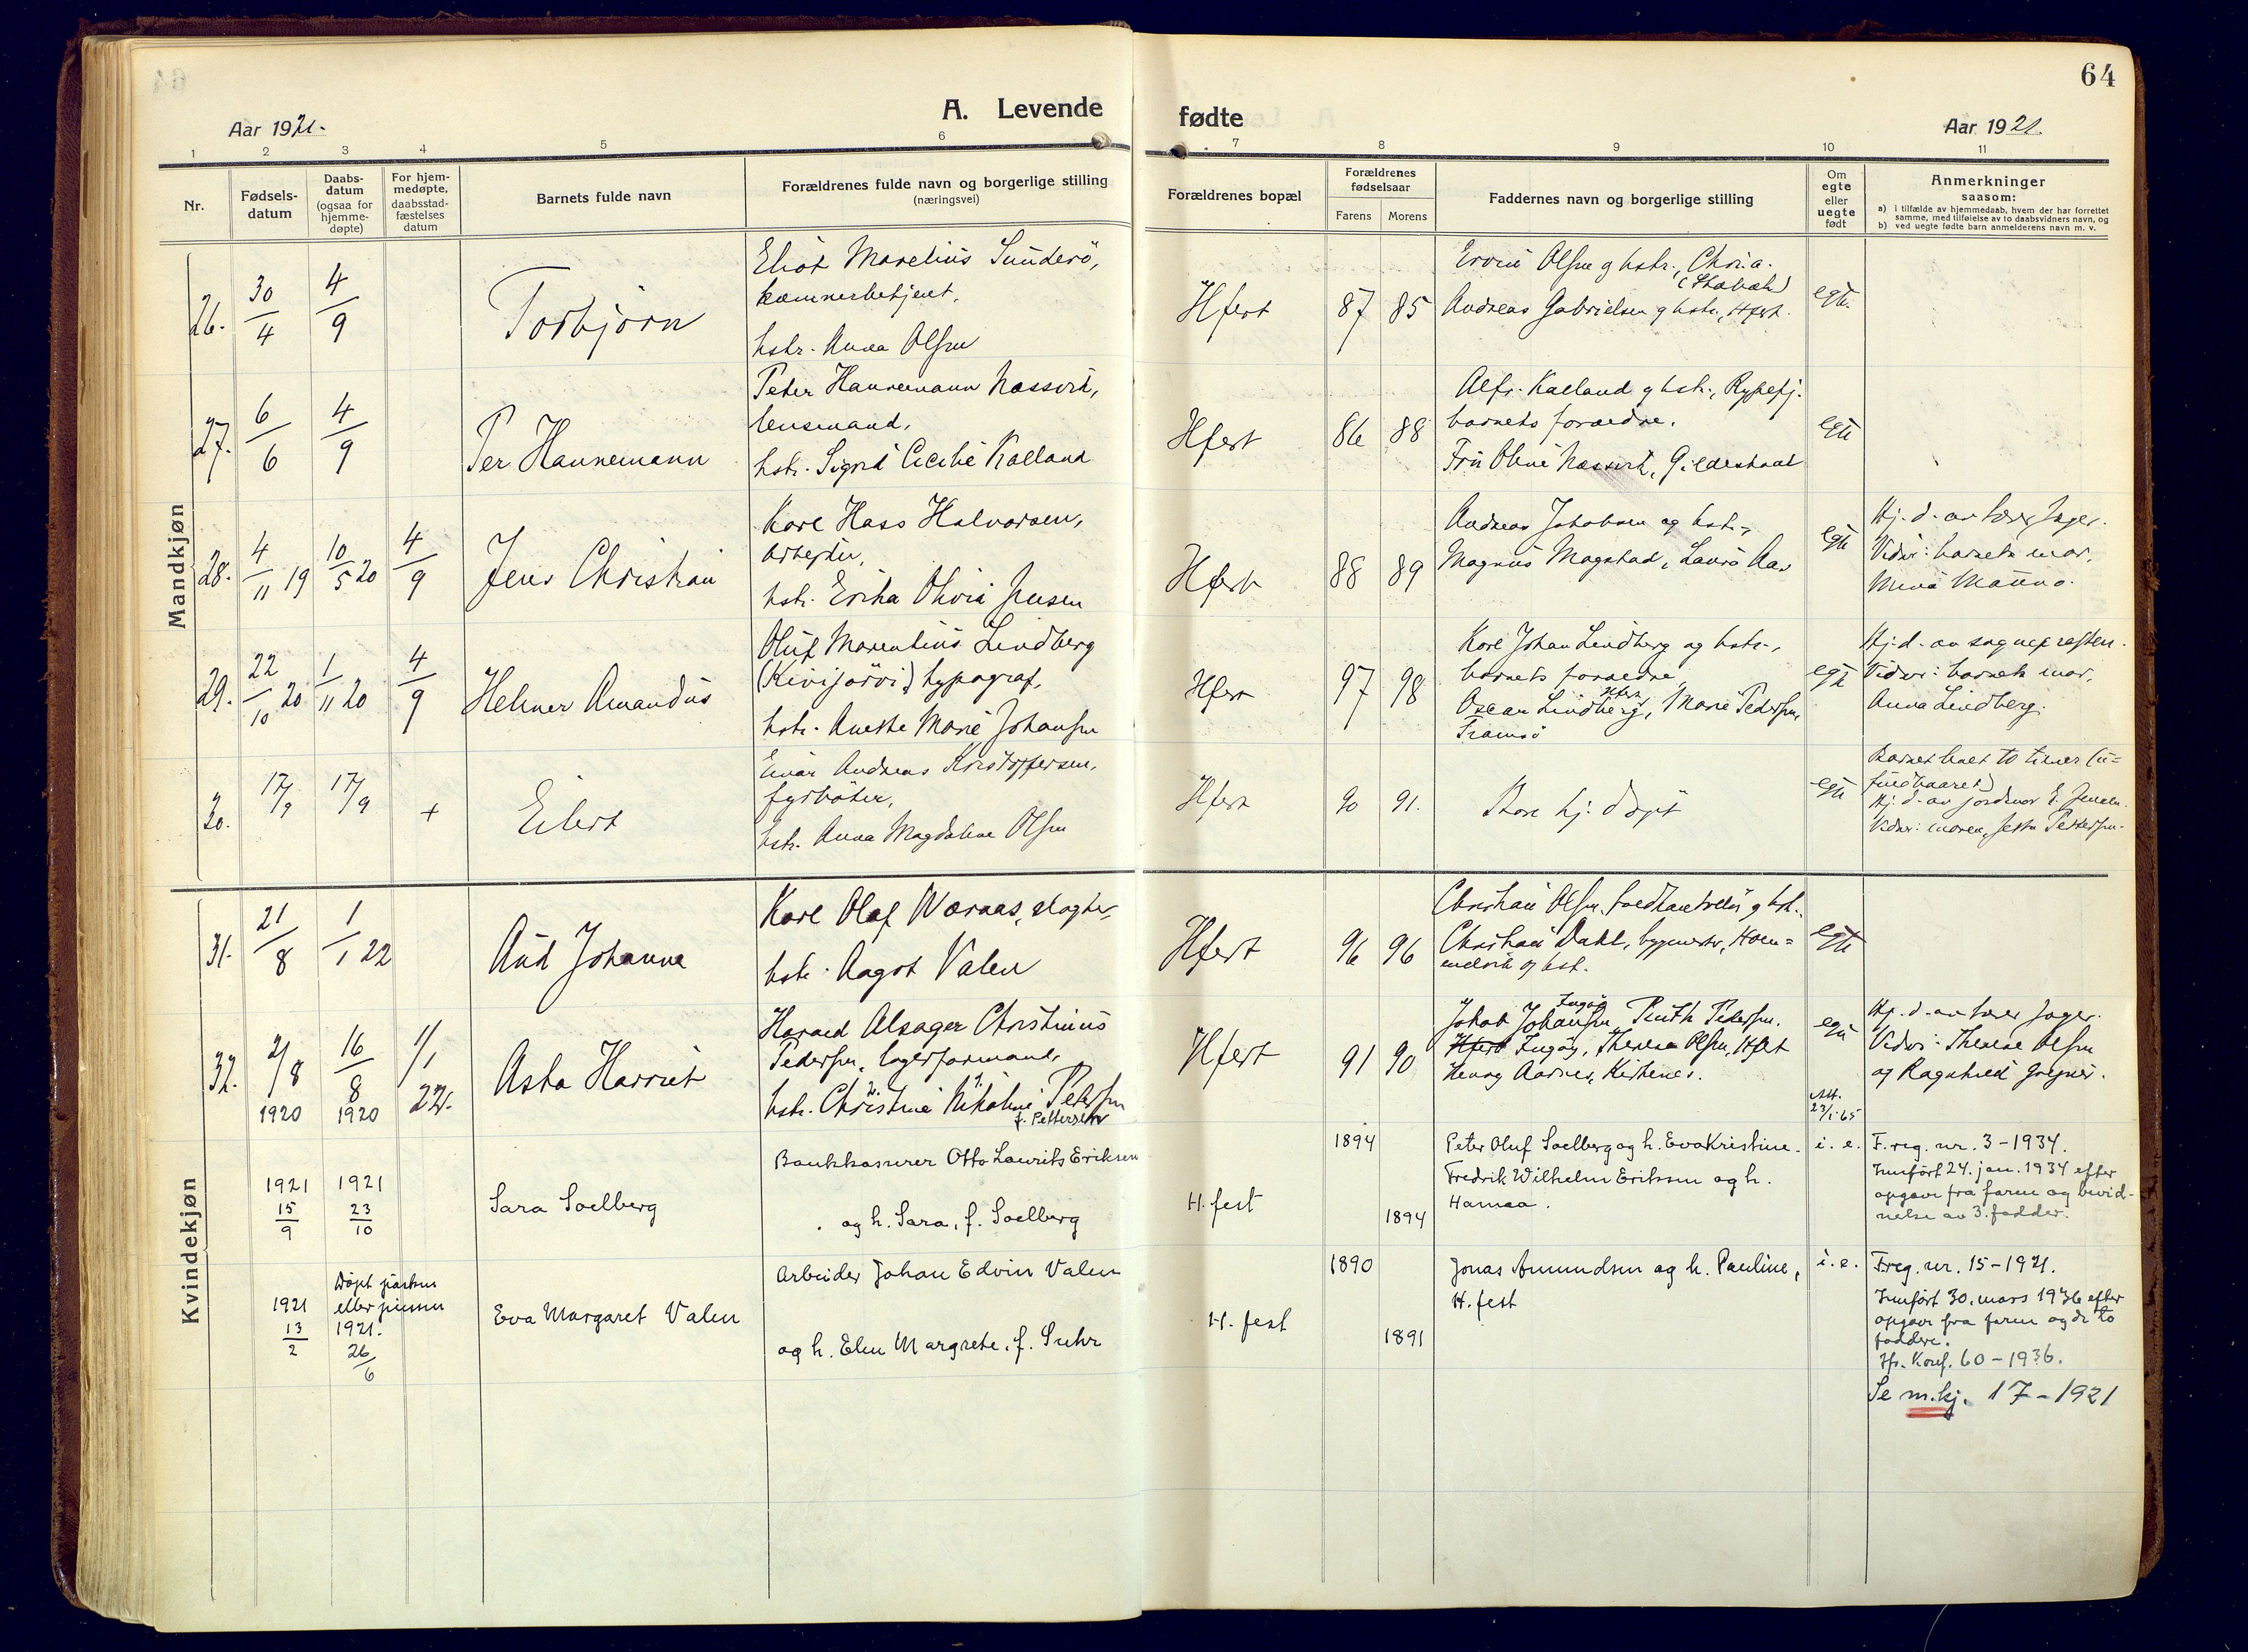 64
A. Levende fødte
Aar 1921.
Aar 1921.
1 2 3 4 5 6 7 8 9 10 11
Nr.
Fødsels-
datum
Daabs-
datum
(ogsaa for
hjemme-
døpte)
For hjem-
medøpte,
daabsstad-
fæstelses
datum
Barnets fulde navn
Forældrenes fulde navn og borgerlige stilling
(næringsvei)
Forældrenes bopæl
Forældrenes
fødselsaar
Farens Morens
Faddernes navn og borgerlige stilling
Om
egte
eller
uegte
født
Anmerkninger
saasom:
a) i tilfælde av hjemmedaab, hvem der har forrettet
samme, med tilføielse av to daabsvidners navn, og
b) ved uegte fødte barn anmelderens navn m. v.
Mandkjøn
26.
30/4
4/9
Torbjörn
Eliot Marelius Sunderö,
kæmnerbetjent,
hstr. Anna Olsen
Hfest
87 85
Olsen og hstr., Chr.a.
Andreas Gabrielsen og hstr., Hfest.
egte.
27.
6/6
4/9
Per Hannemann
Peter Hannemann Næssvik,
lensmand,
hstr. Sigrid Cecilie Kalland
Hfest
86 88
Alfr. Kalland og hstr., Rypefj.
barnets forældre.
Fru Oline Næssvik, Gildeskaal
egte
28.
4/11 19
10/5 20
4/9
Jens Christian
Karl Hass Halvorsen,
arbeider,
hstr. Erika Olivia Jensen
Hfest
88 89
Andreas Jakobsen og hstr.,
Magnus Magstad, Laura Aas
egte
Hj. d. av lærer Jager.
Vidner: barnets mor,
Mina Mauno.
29.
22/10 20
1/11 20
4/9
Helmer Amandus
Oluf Marentius Lindberg
(Kivijärvi), typograf,
hstr. Anethe Marie Johansen
Hfest
97 98
Karl Johan Lindberg og hstr.,
barnets forældre,
Oscar Lindberg, Hfest, Marie Pedersen,
Tromsö
egte
Hj. d. av sognepresten.
Vidner: barnets mor,
Anna Lindberg.
30.
17/9
17/9
+
Eilert
Einar Andreas Kristoffersen,
fyrbøter,
hstr. Anna Magdalene Olsen
Hfest
90 91.
Kun hj. døpt
egte
Barnet levet to timer (u=
fuldbaaret)
Hj. d. av jordmor E. Jensen.
Vidner: moren, Pettersen.
Kvindekjøn
31.
21/8
1/1 22
Aud Johanna
Karl Olaf Woraas, slagter,
hstr. Aagot Valen
Hfest
96 96
Christian Olsen, og hstr.
Christian Dahl, bygmester,
og hst.
egte
32.
2/8
1920
16/8
1920
1/1
22.
Asta Harriet
Harald Alsager Christinius
Pedersen, lagerformand,
hstr. Christine Nikoline Petersen
f. Pettersen
Hfest
91 90
Jakob Johansen, Ingöy, Ruth Pedersen,
Hfest Ingöy, Therese Olsen, Hfest
Henry Aarnes, Kirkenes.
egte
Att.
23/1-65
Hj. d. av lærer Jager.
Vidner: Therese Olsen
og Ragnhild Gregusi.
1921
15/9
1921
23/10
Sara Soelberg
Bankkasserer Otto Laurits Eriksen
og h. Sara, f. Soelberg
H.fest
1894
1894
Peter Oluf Soelberg og h. Eva Kristine.
Fredrik Wilhelm Eriksen og h.
Hanna.
i. e.
F. reg. nr. 3 - 1934.
Innført 24. jan. 1934 efter
opgave fra faren og bevid-
nelse av 3. fadder.
1921
13/2
Döpt påsken
eller pinsen
1921.
26/6
Eva Margaret Valen
Arbeider Johan Edvin Valen
og h. Elen Margrete, f. Suhr
H. fest
1890
1891
Jonas Amundsen og h. Pauline,
H. fest
i. e.
F.reg. nr. 15 - 1921.
Innført 30. mars 1936 efter
opgave fra faren og de to
faddere.
Hfr. Konf. 60 - 1936.
Se m.kj. 17 - 1921